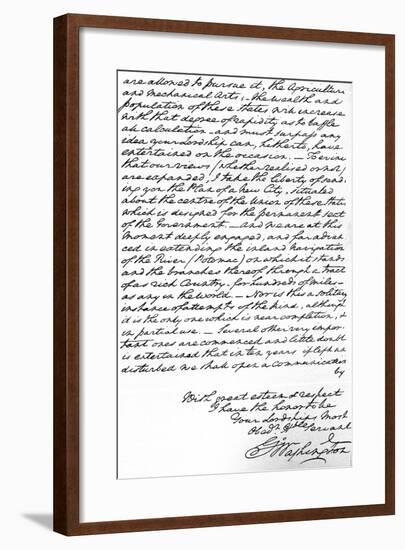 are allowed to pursue it, the Agriculture
and Mechanical Arts; – the wealth and
population of these States will increase
with that degree of rapidity as to baffle
all calculation – and must surpass any
idea your Lordship can, hitherto, have
entertained on the occasion. – To evince
that our views (whether realised or not)
are expanded, I take the liberty of send-
ing you the Plan of a New City, situated
about the centre of the Union of these States
which is designed for the permanent seat
of the Government. – And we are at this
moment deeply engaged, and far advan-
ced in extending the inland navigation
of the River (Potomac) on which it stands
and the branches thereof through a tract
of as rich Country – for hundreds of miles –
as any in the world. – Nor is this a solitary
instance of attempts of the kind, although
it is the only one which is near completion, &
in partial use. – Several other very impor-
tant ones are commenced and little doubt
is entertained that in ten years if left un
disturbed we shall open a communication
by
With great esteem & respect
I have the honor to be
Your Lordships Most
Obedt Hble Servant
Go Washington